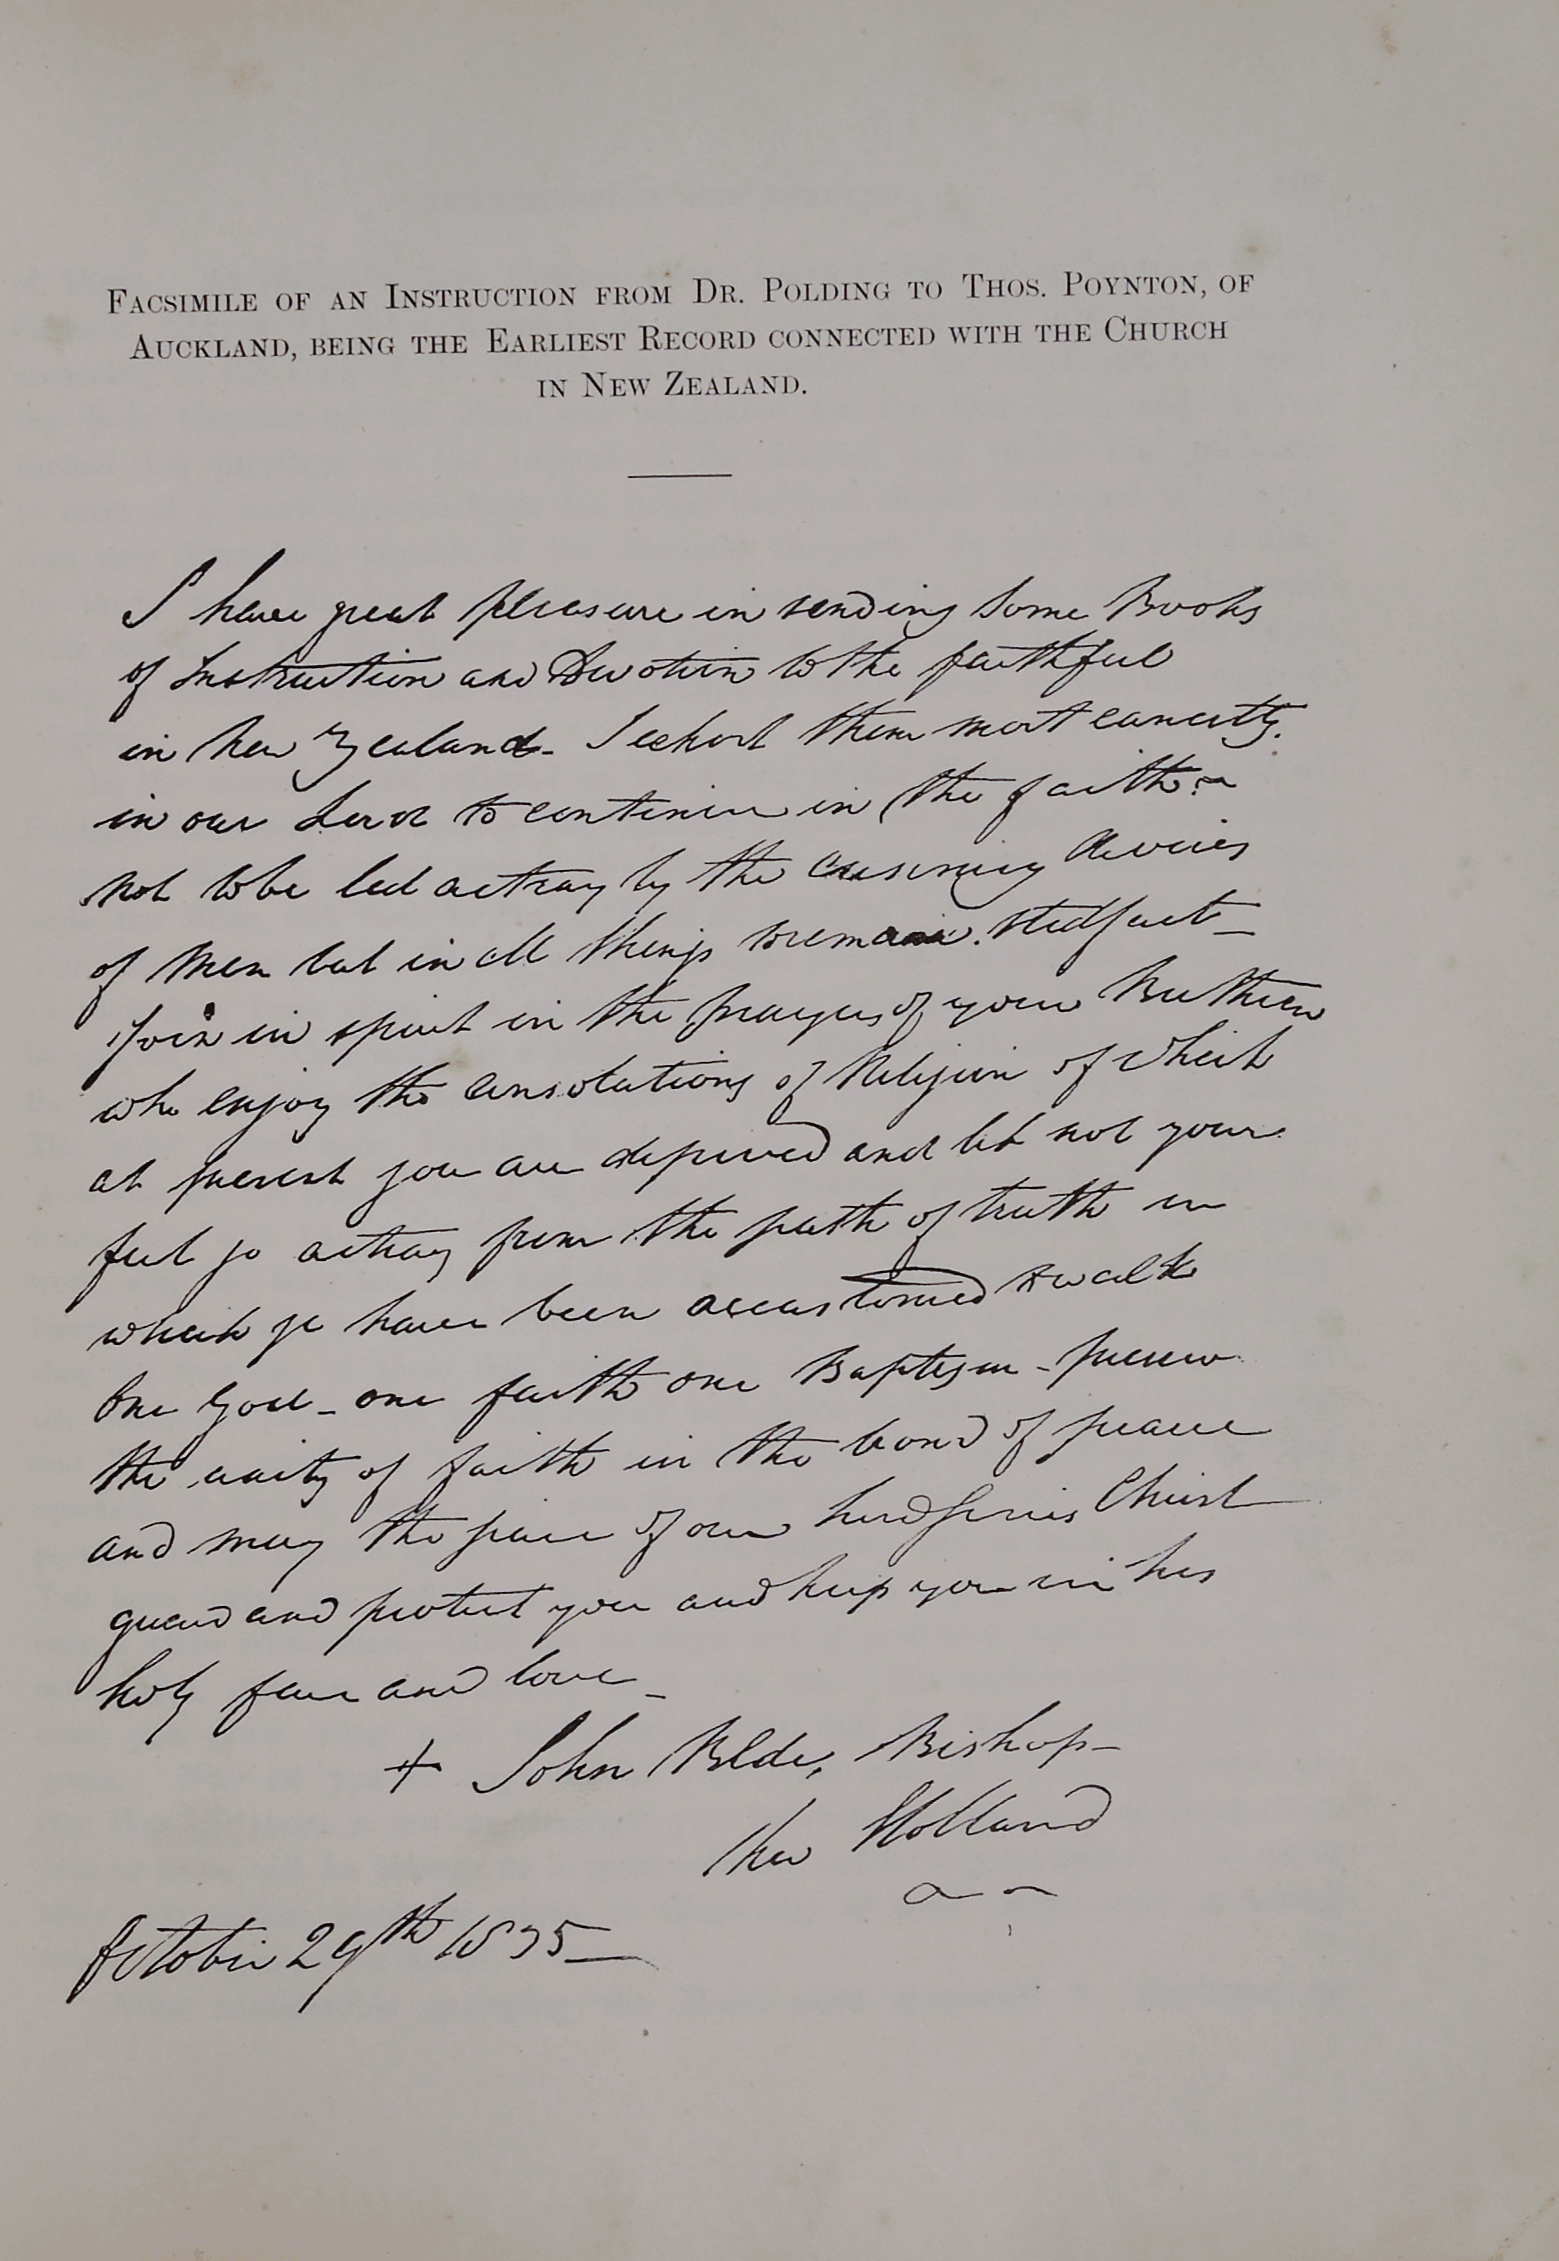 FACSIMILE OF AN INSTRUCTION FROM DR. POLDING TO THOS. POYNTON, OF
AUCKLAND, BEING THE EARLIEST RECORD CONNECTED WITH THE CHURCH
IN NEW ZEALAND.
I have great pleasure in sending some Books
of Instruction and Devotion to the faithful
in New Zealand - I exhort them most earnestly
in our Lord to continue in the faith &
not to be led astray by the cunning devices
of Men but in all things to remain stedfast -
Join in spirit in the prayers of your Brethren
who enjoy the consolations of Religion of which
at present you are deprived and let not your
feet go astray from the path of truth in
which ye have been accustomed to walk
One God - one faith one Baptism - preserve
the unity of faith in the bond of peace
and may the peace of our Lord Jesus Christ
guard and protect you and keep you in his
holy fear and love -
+ John Bede, Bishop -
New Holland
October 29th 1835 -